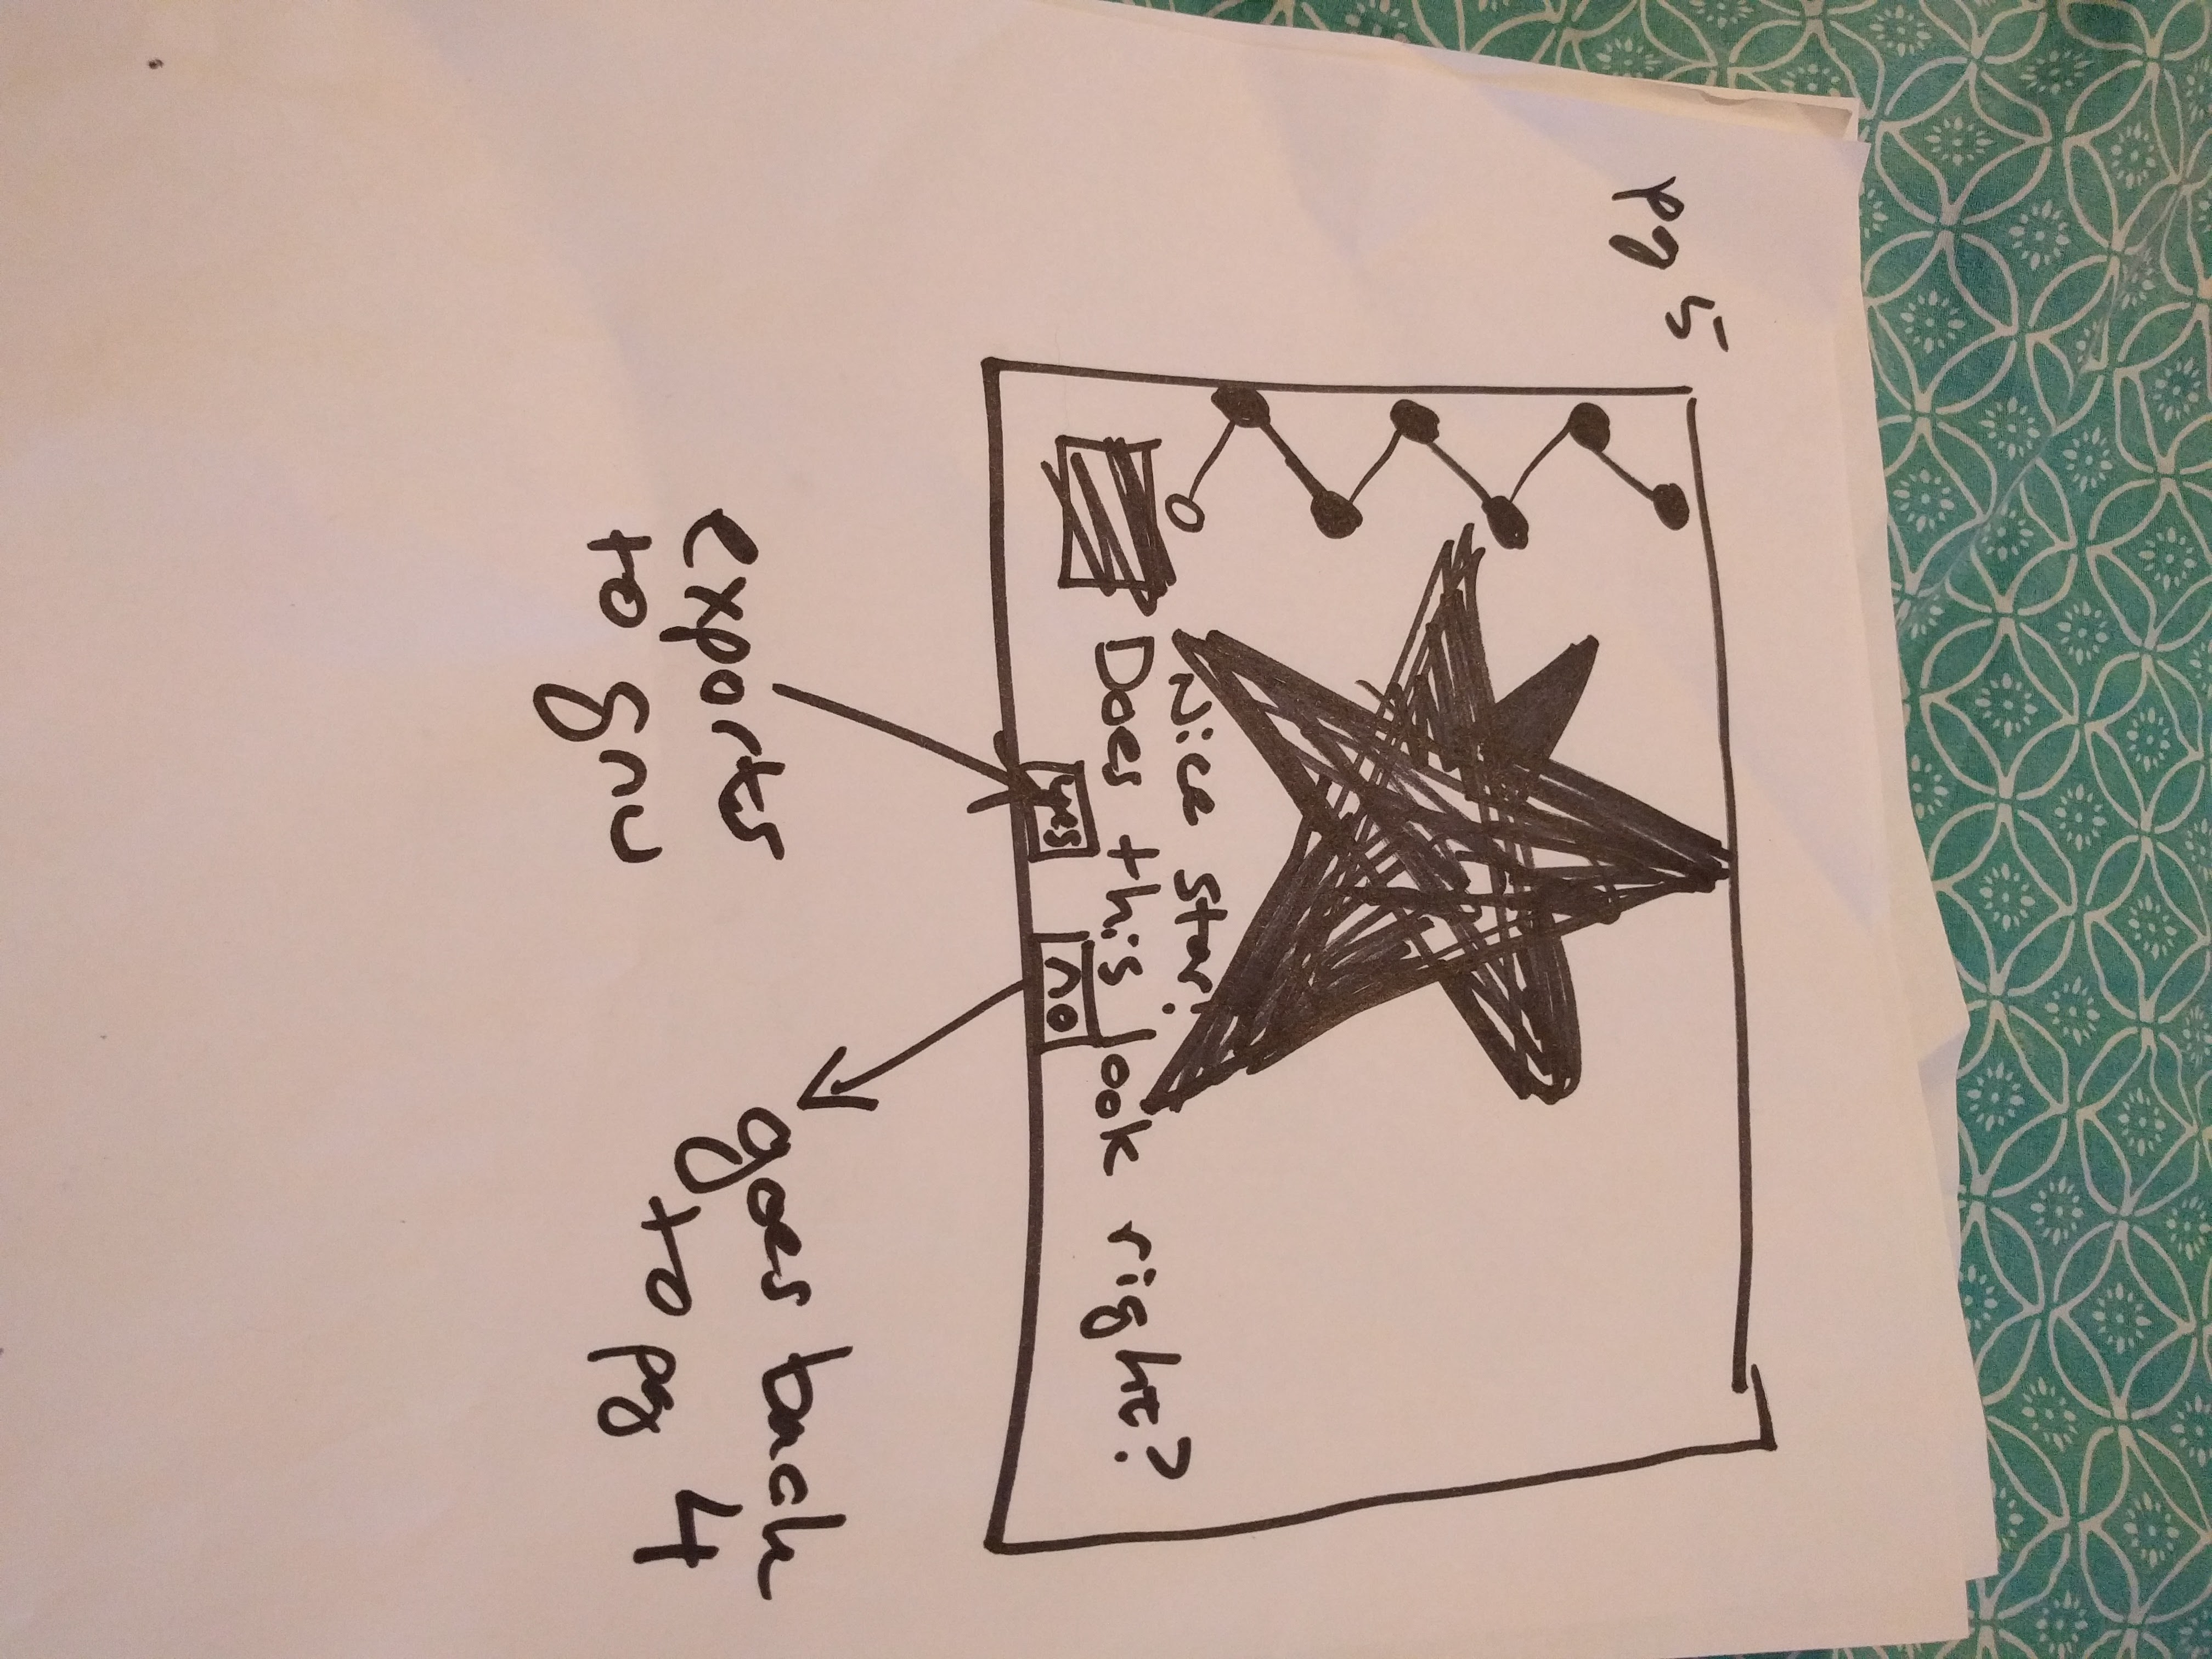 pg 5
Nice star!
Does this look right?
yes
no
exports
to gnu
goes back
to pg 4